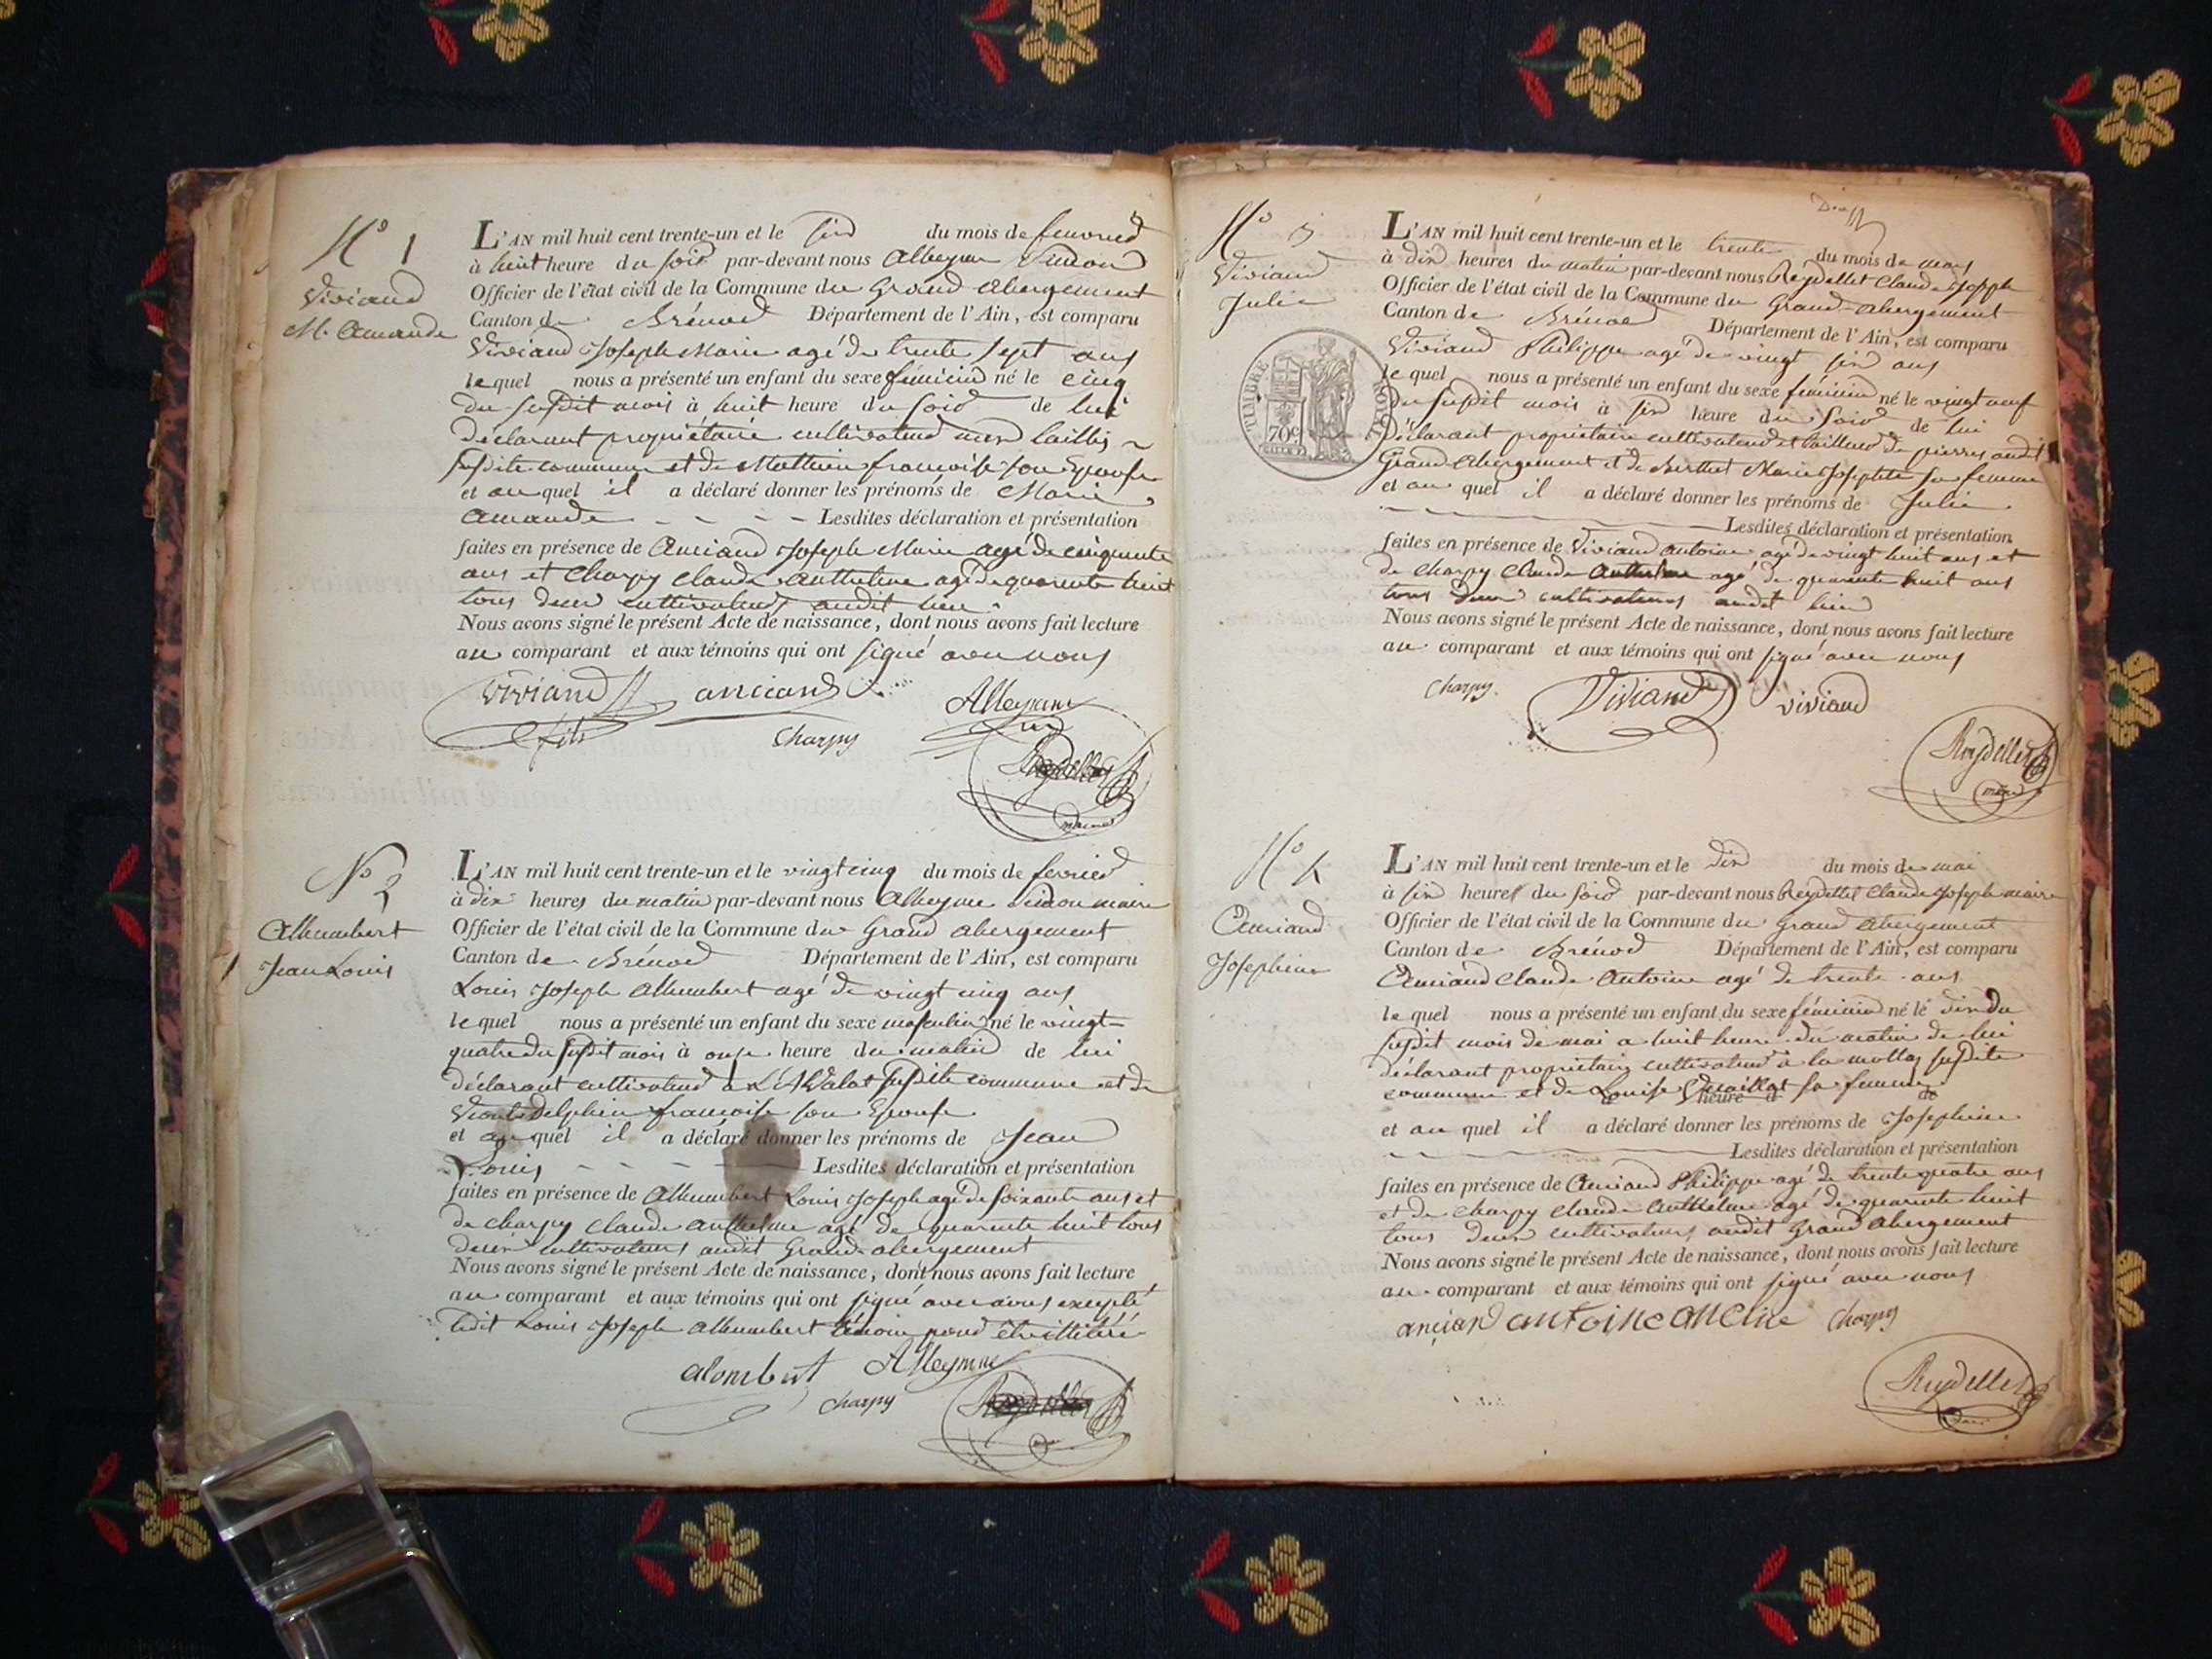 N° 1
Viviand
M. Amande
L'AN mil huit cent trente-un et le six du mois de fevrier
à huit heure du soir par-devant nous Alleyme Simon
Officier de l'état civil de la Commune du Grand abergement
Canton de Brénod Département de l'Ain, est comparu
Viviand Joseph Marie agé de trente sept ans
lequel nous a présenté un enfant du sexe féminin né le cinq
du susdit mois à huit heure du soir de lui
déclarant propriétaire cultivateur
susdite commune et de françoise son Epouse
et au quel il a déclaré donner les prénoms de Marie
Amande Lesdites déclaration et présentation
faites en présence de Anciand Joseph Marie agé de cinquante
ans et Charpy Claude Anthelme agé de quarante huit
tous deux cultivateurs audit lieu
Nous avons signé le présent Acte de naissance, dont nous avons fait lecture
au comparant et aux témoins qui ont signé avec nous
viviand anciand Alleyme
fils Charpy
Reydellet
maire
N° 2
Allumbert
Jean Louis
L'AN mil huit cent trente-un et le vingt cinq du mois de fevrier
à dix heures du matin par-devant nous Alleyme Simon maire
Officier de l'état civil de la Commune du Grand abergement
Canton de Brénod Département de l'Ain, est comparu
Louis Joseph Allumbert agé de vingt cinq ans
lequel nous a présenté un enfant du sexe masculin né le vingt-
quatre du susdit mois à onze heure du matin de lui
déclarant cultivateur à susdite commune et de
delphin françoise son Epouse
et au quel il a déclaré donner les prénoms de Jean
Louis Lesdites déclaration et présentation
faites en présence de Allumbert Louis Joseph agé de soixante ans et
de Charpy Claude anthelme agé de quarante huit tous
deux cultivateurs audit Grand-abergement
Nous avons signé le présent Acte de naissance, dont nous avons fait lecture
au comparant et aux témoins qui ont signé avec nous excepté
ledit Louis Joseph Allumbert témoin pour être illitéré
alombert Alleyme
charpy Reydellet
N° 3
Viviand
Julie
TIMBRE ROYAL
70c
L'AN mil huit cent trente-un et le trente du mois de mars
à dix heures du matin par-devant nous Reydellet Claude Joseph
Officier de l'état civil de la Commune du Grand-abergement
Canton de Brénod Département de l'Ain, est comparu
Viviand Philippe agé de vingt six ans
lequel nous a présenté un enfant du sexe féminin né le vingt neuf
du susdit mois à six heure du soir de lui
déclarant propriétaire cultivateur et tailleur de pierres audit
Grand abergement et de Berthet Marie Josephte sa femme
et au quel il a déclaré donner les prénoms de Julie
Lesdites déclaration et présentation
faites en présence de Viviand antoine agé de vingt huit ans et
de Charpy Claude Anthelme agé de quarante huit ans
tous deux cultivateurs audit lieu
Nous avons signé le présent Acte de naissance, dont nous avons fait lecture
au comparant et aux témoins qui ont signé avec nous
Charpy Viviand viviand
Reydellet
maire
N° 4
Anciand
Josephine
L'AN mil huit cent trente-un et le dix du mois de mai
à six heures du soir par-devant nous Reydellet Claude Joseph maire
Officier de l'état civil de la Commune du Grand abergement
Canton de Brénod Département de l'Ain, est comparu
Anciand Claude Antoine agé de trente ans
lequel nous a présenté un enfant du sexe féminin né le dix du
susdit mois de mai à huit heure du matin de lui
déclarant propriétaire cultivateur à la mollaz susdite
commune et de Louise sa femme
heure d de
et au quel il a déclaré donner les prénoms de Josephine
Lesdites déclaration et présentation
faites en présence de Anciand Philippe agé de trente quatre ans
et de Charpy Claude Anthelme agé de quarante huit
tous deux cultivateurs audit Grand abergement
Nous avons signé le présent Acte de naissance, dont nous avons fait lecture
au comparant et aux témoins qui ont signé avec nous
anciand antoine Charpy
Reydellet